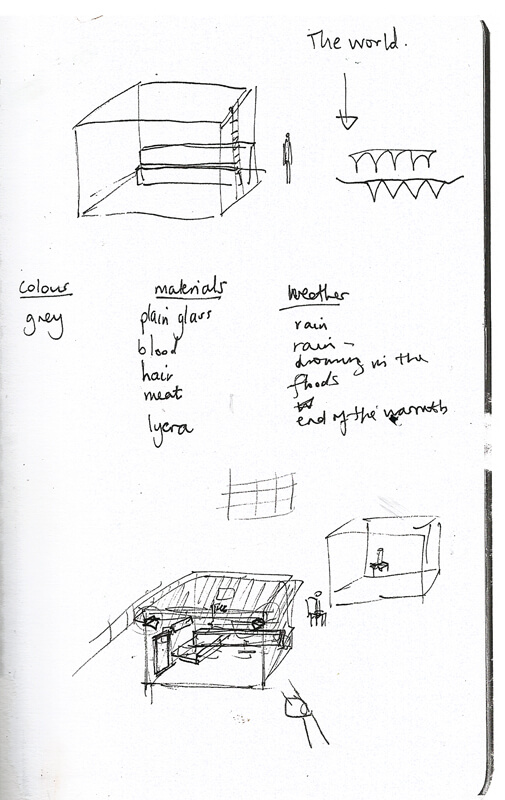 The world.
colour
grey
materials
plain glass
blood
hair
meat
lycra
weather
rain
rain -
drowning in the
floods
end of the warmth